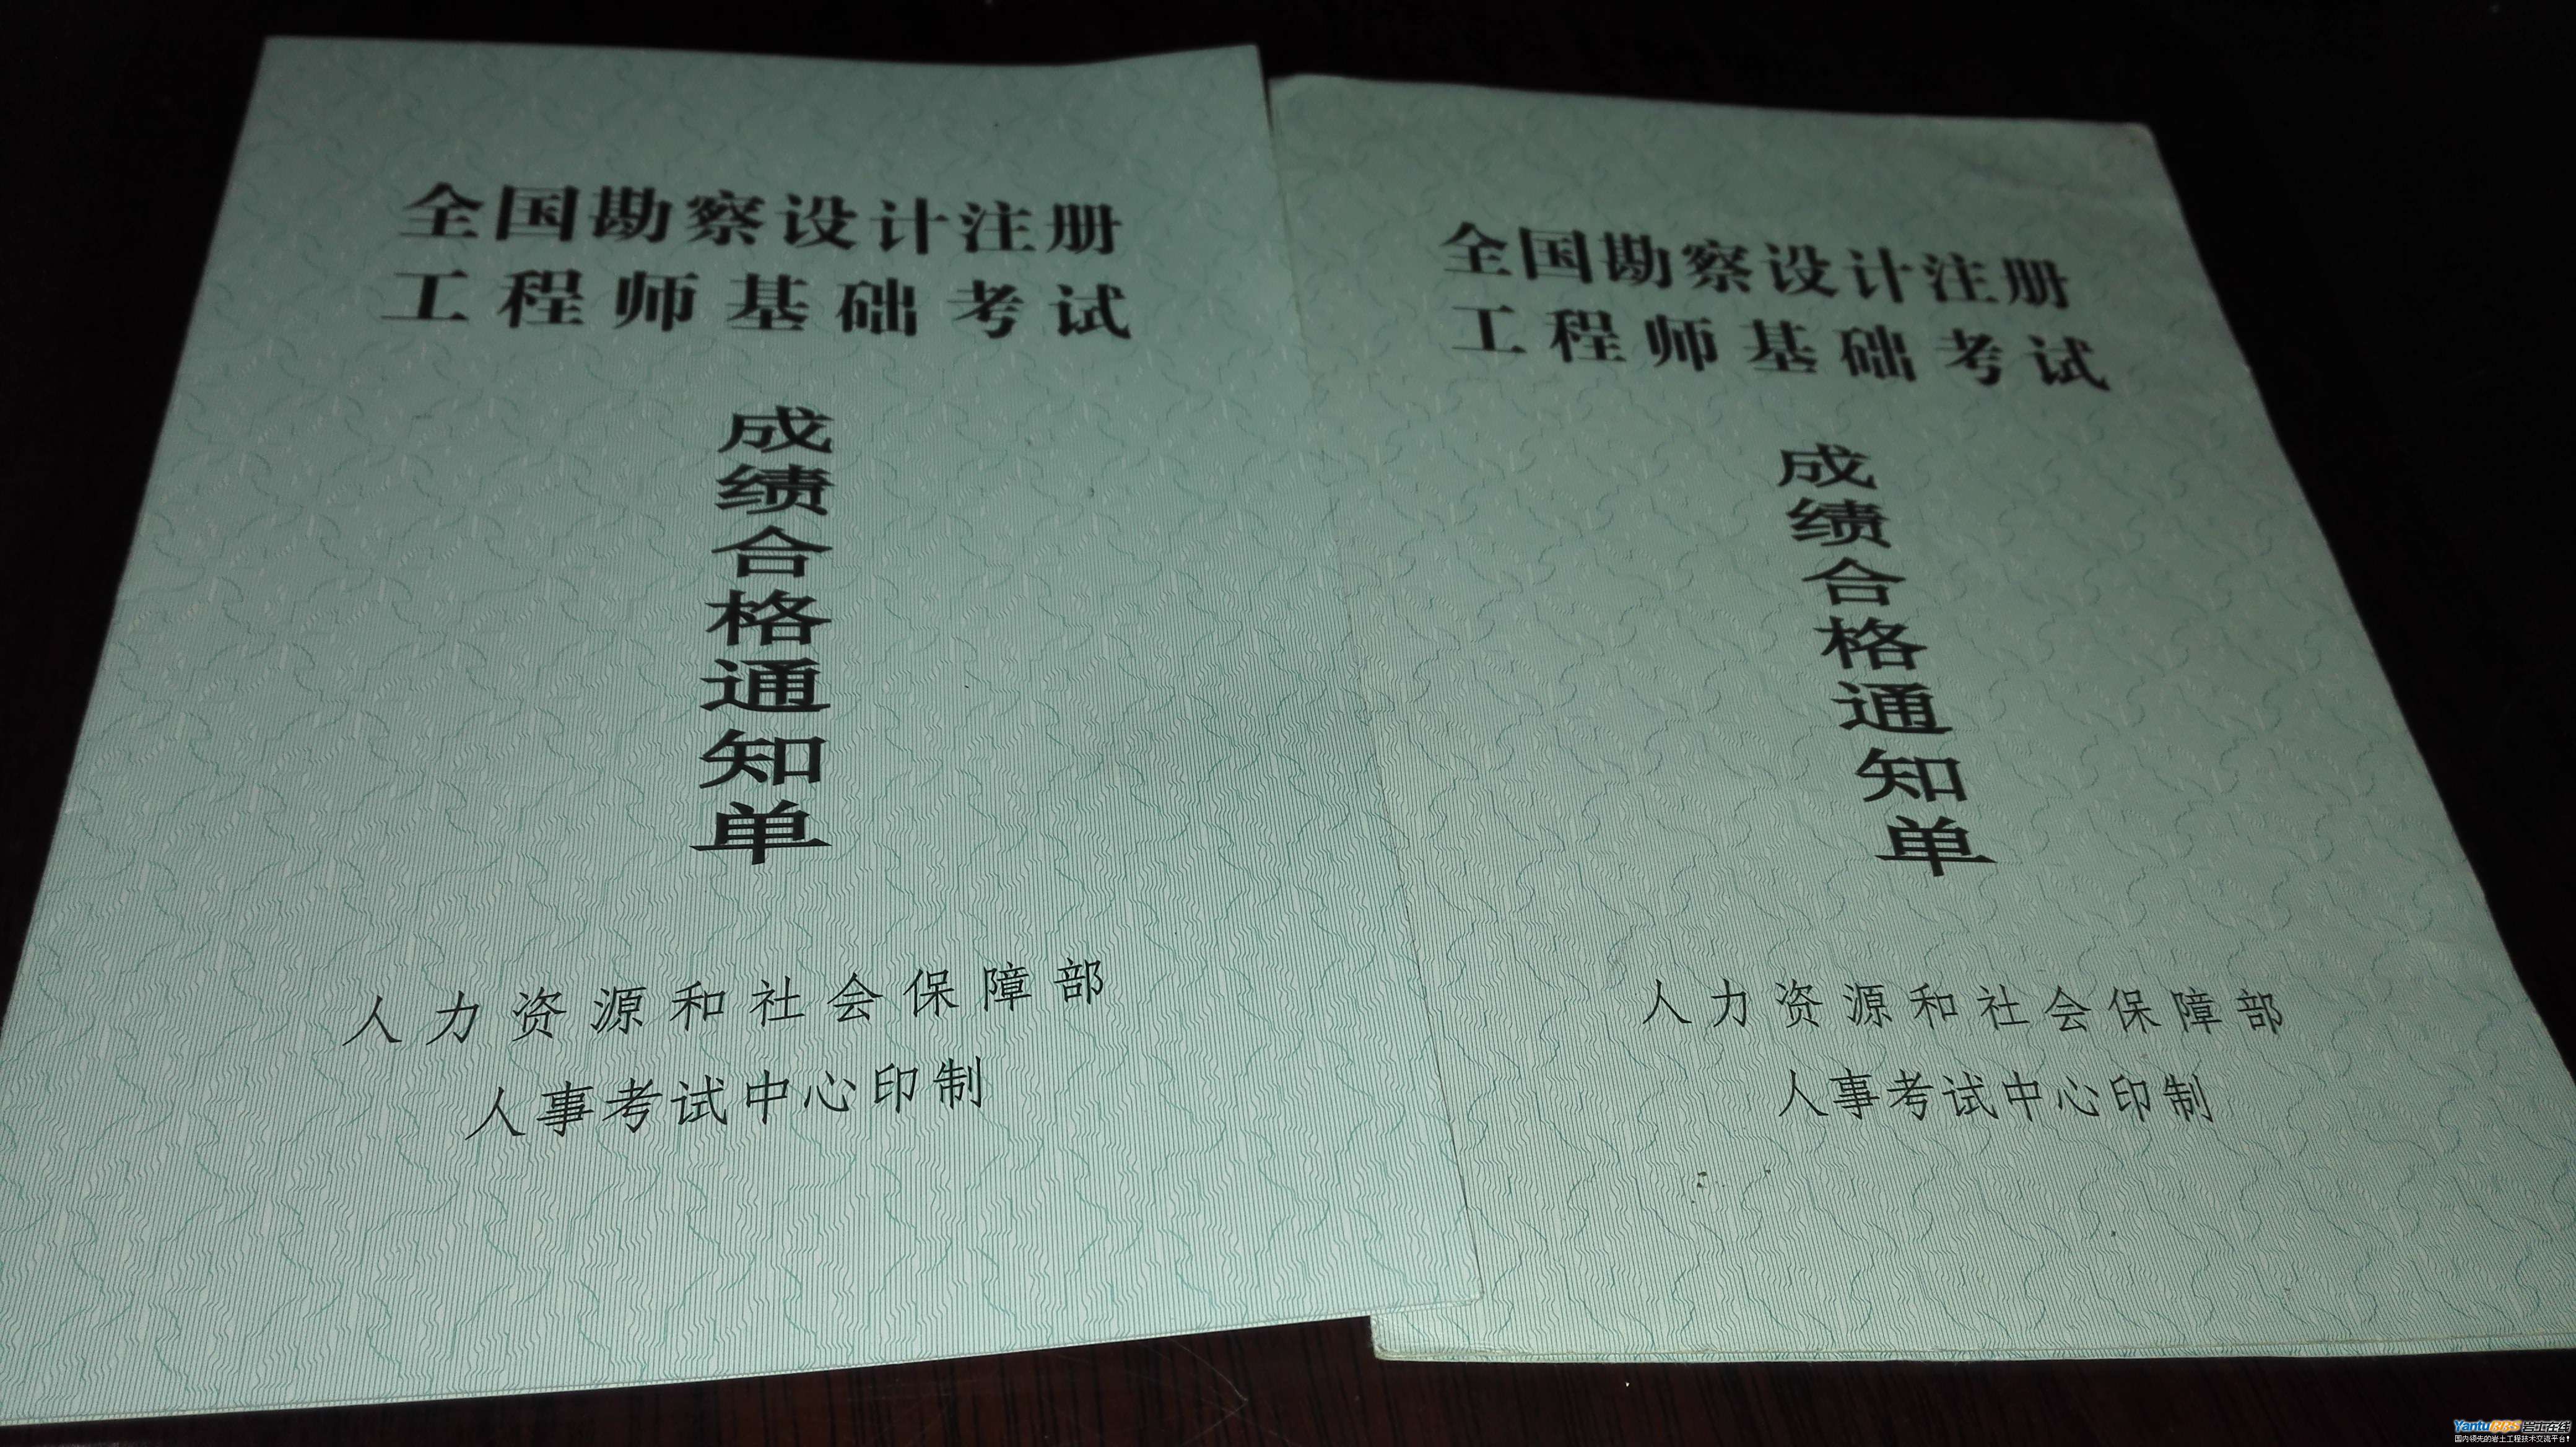 全国勘察设计注册
工程师基础考试
成绩合格通知单
人力资源和社会保障部
人事考试中心印制
全国勘察设计注册
工程师基础考试
成绩合格通知单
人力资源和社会保障部
人事考试中心印制
YantuBBS 岩土在线
国内领先的岩土工程技术交流平台!